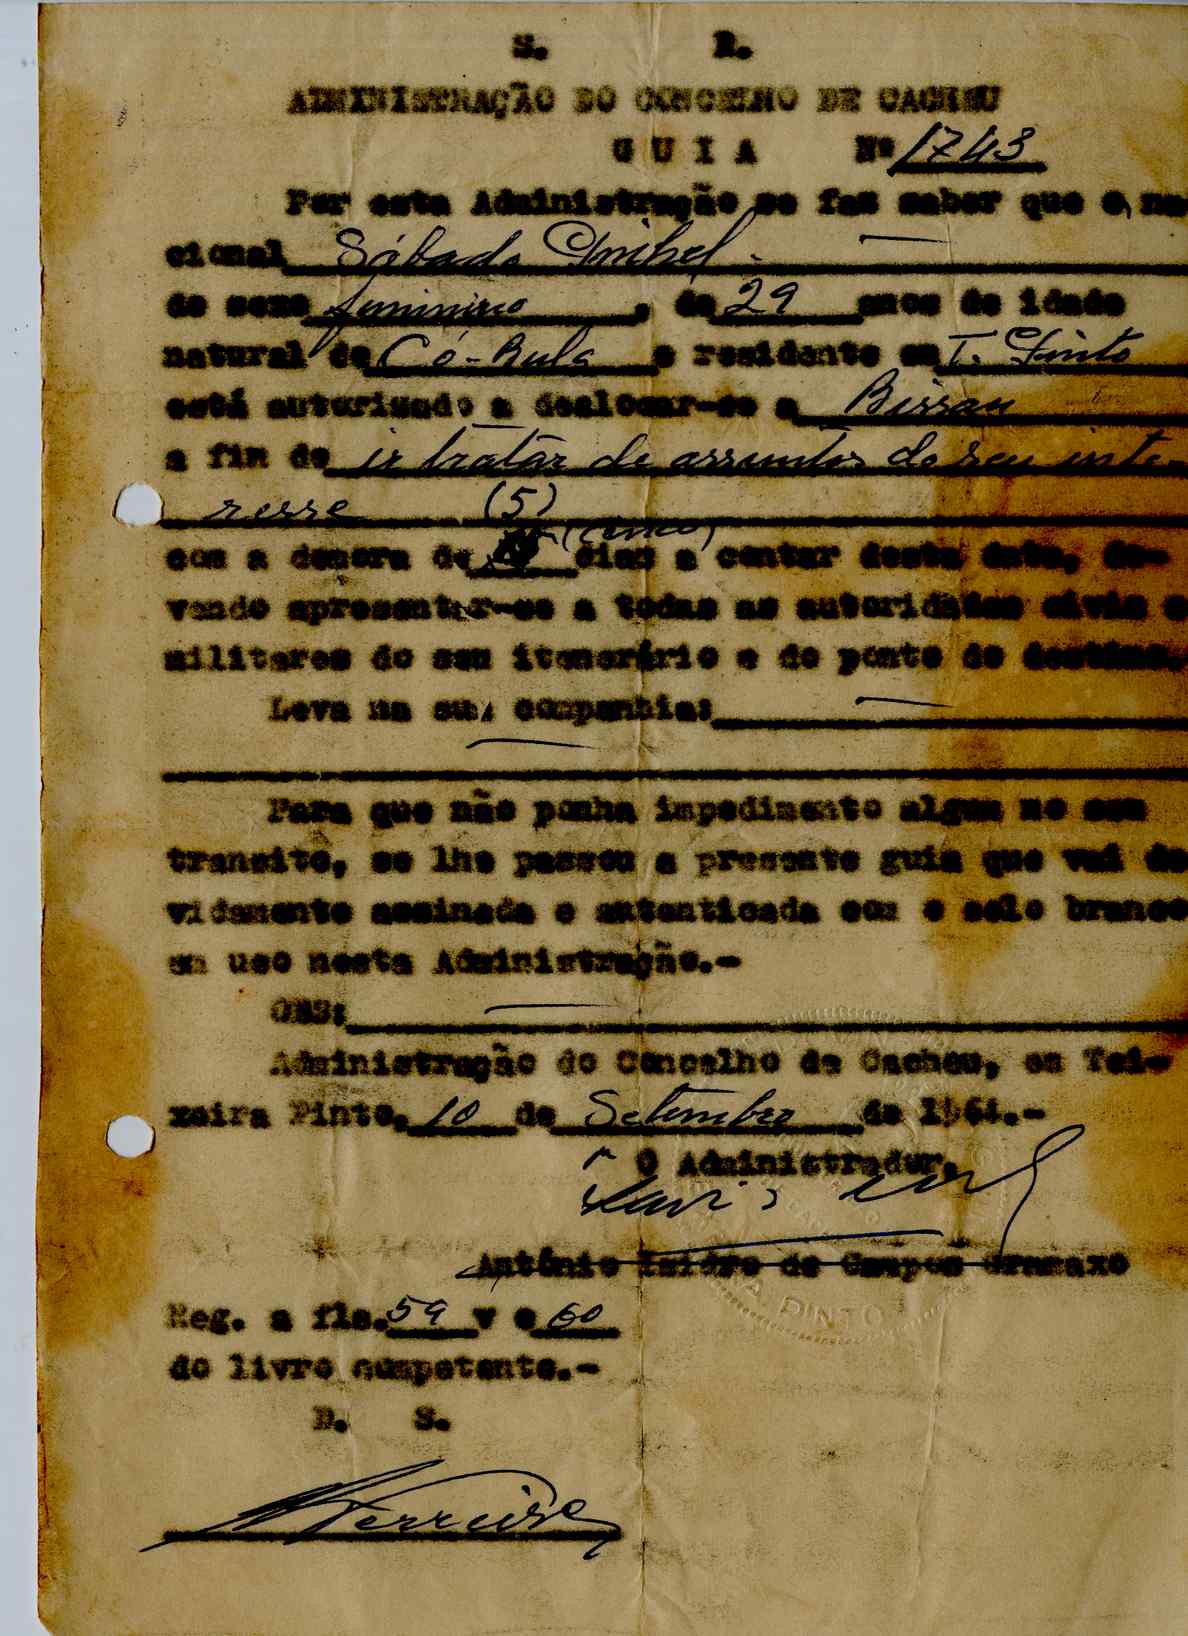 S. R.
ADMINISTRAÇÃO DO CONCELHO DE CACHEU
G U I A Nº 1743
Por esta Administração se faz saber que o na-
cional Sábado
de sexo feminino, de 29 anos de idade
natural de Có-Bula e residente em T. Pinto
está autorizado a deslocar-se a Bissau
a fim de ir tratar de assuntos do seu inte-
resse (5)
com a demora de (cinco) dias a contar desta data, de-
vendo apresentar-se a todas as autoridades civis e
militares do seu itenerário e do ponto de destino.
Leva na sua companhia:
Para que não ponha impedimento algum no seu
transito, se lhe passou a presente guia que vai de
vidamente assinada e autenticada com o selo branco
em uso nesta Administração.-
OBS:
Administração do Concelho de Cacheu, em Tei-
xeira Pinto, 10 de Setembro de 1964.-
O Administrador,
António Isidro de Campos Gramaxo
A. PINTO
Reg. a fls. 59 v e 60
do livro competente.-
D. S.
Ferreira